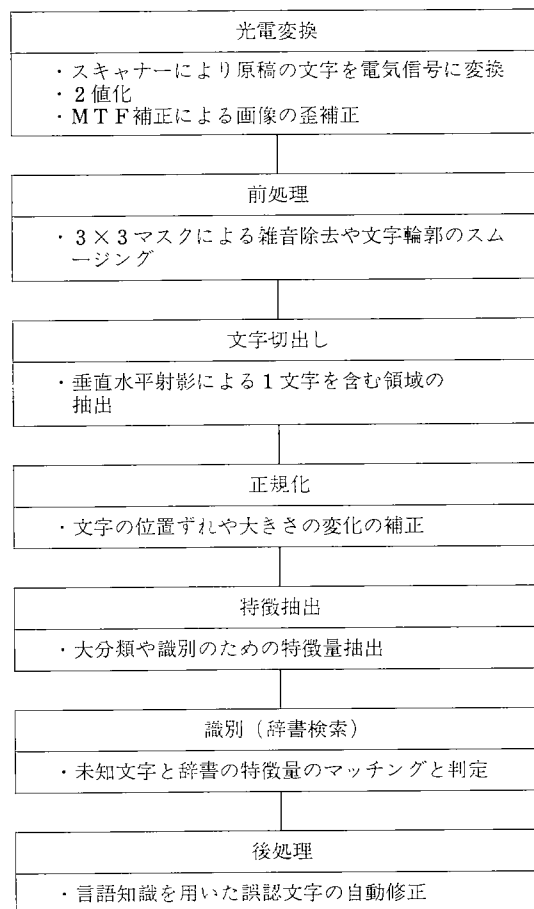 光電変換
・スキャナーにより原稿の文字を電気信号に変換
・2値化
・MTF補正による画像の歪補正
前処理
・3×3マスクによる雑音除去や文字輪郭のスム
ージング
文字切出し
・垂直水平射影による1文字を含む領域の
抽出
正規化
・文字の位置ずれや大きさの変化の補正
特徴抽出
・大分類や識別のための特徴量抽出
識別（辞書検索）
・未知文字と辞書の特徴量のマッチングと判定
後処理
・言語知識を用いた誤認文字の自動修正